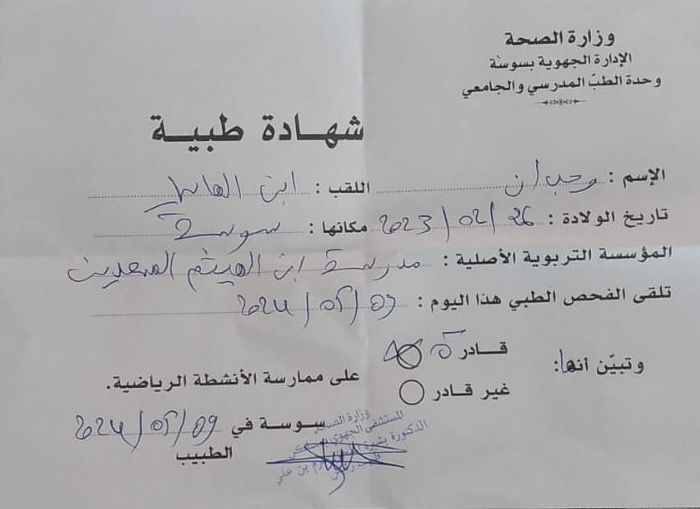 وزارة الصحة
الإدارة الجهوية بسوسة
وحدة الطبّ المدرسي والجامعي
شهادة طبية
الإسم : وجدان اللقب : ابن الهاني
تاريخ الولادة : 26/02/2023 مكانها : سوسة
المؤسسة التربوية الأصلية : مدرسة ابن الهيثم
تلقى الفحص الطبي هذا اليوم : 09/05/2024
وتبيّن أنها :
قادر ة
غير قادر
على ممارسة الأنشطة الرياضية.
سوسة في 09/05/2024
الطبيب
وزارة الصحة
المستشفى الجهوي
الدكتورة